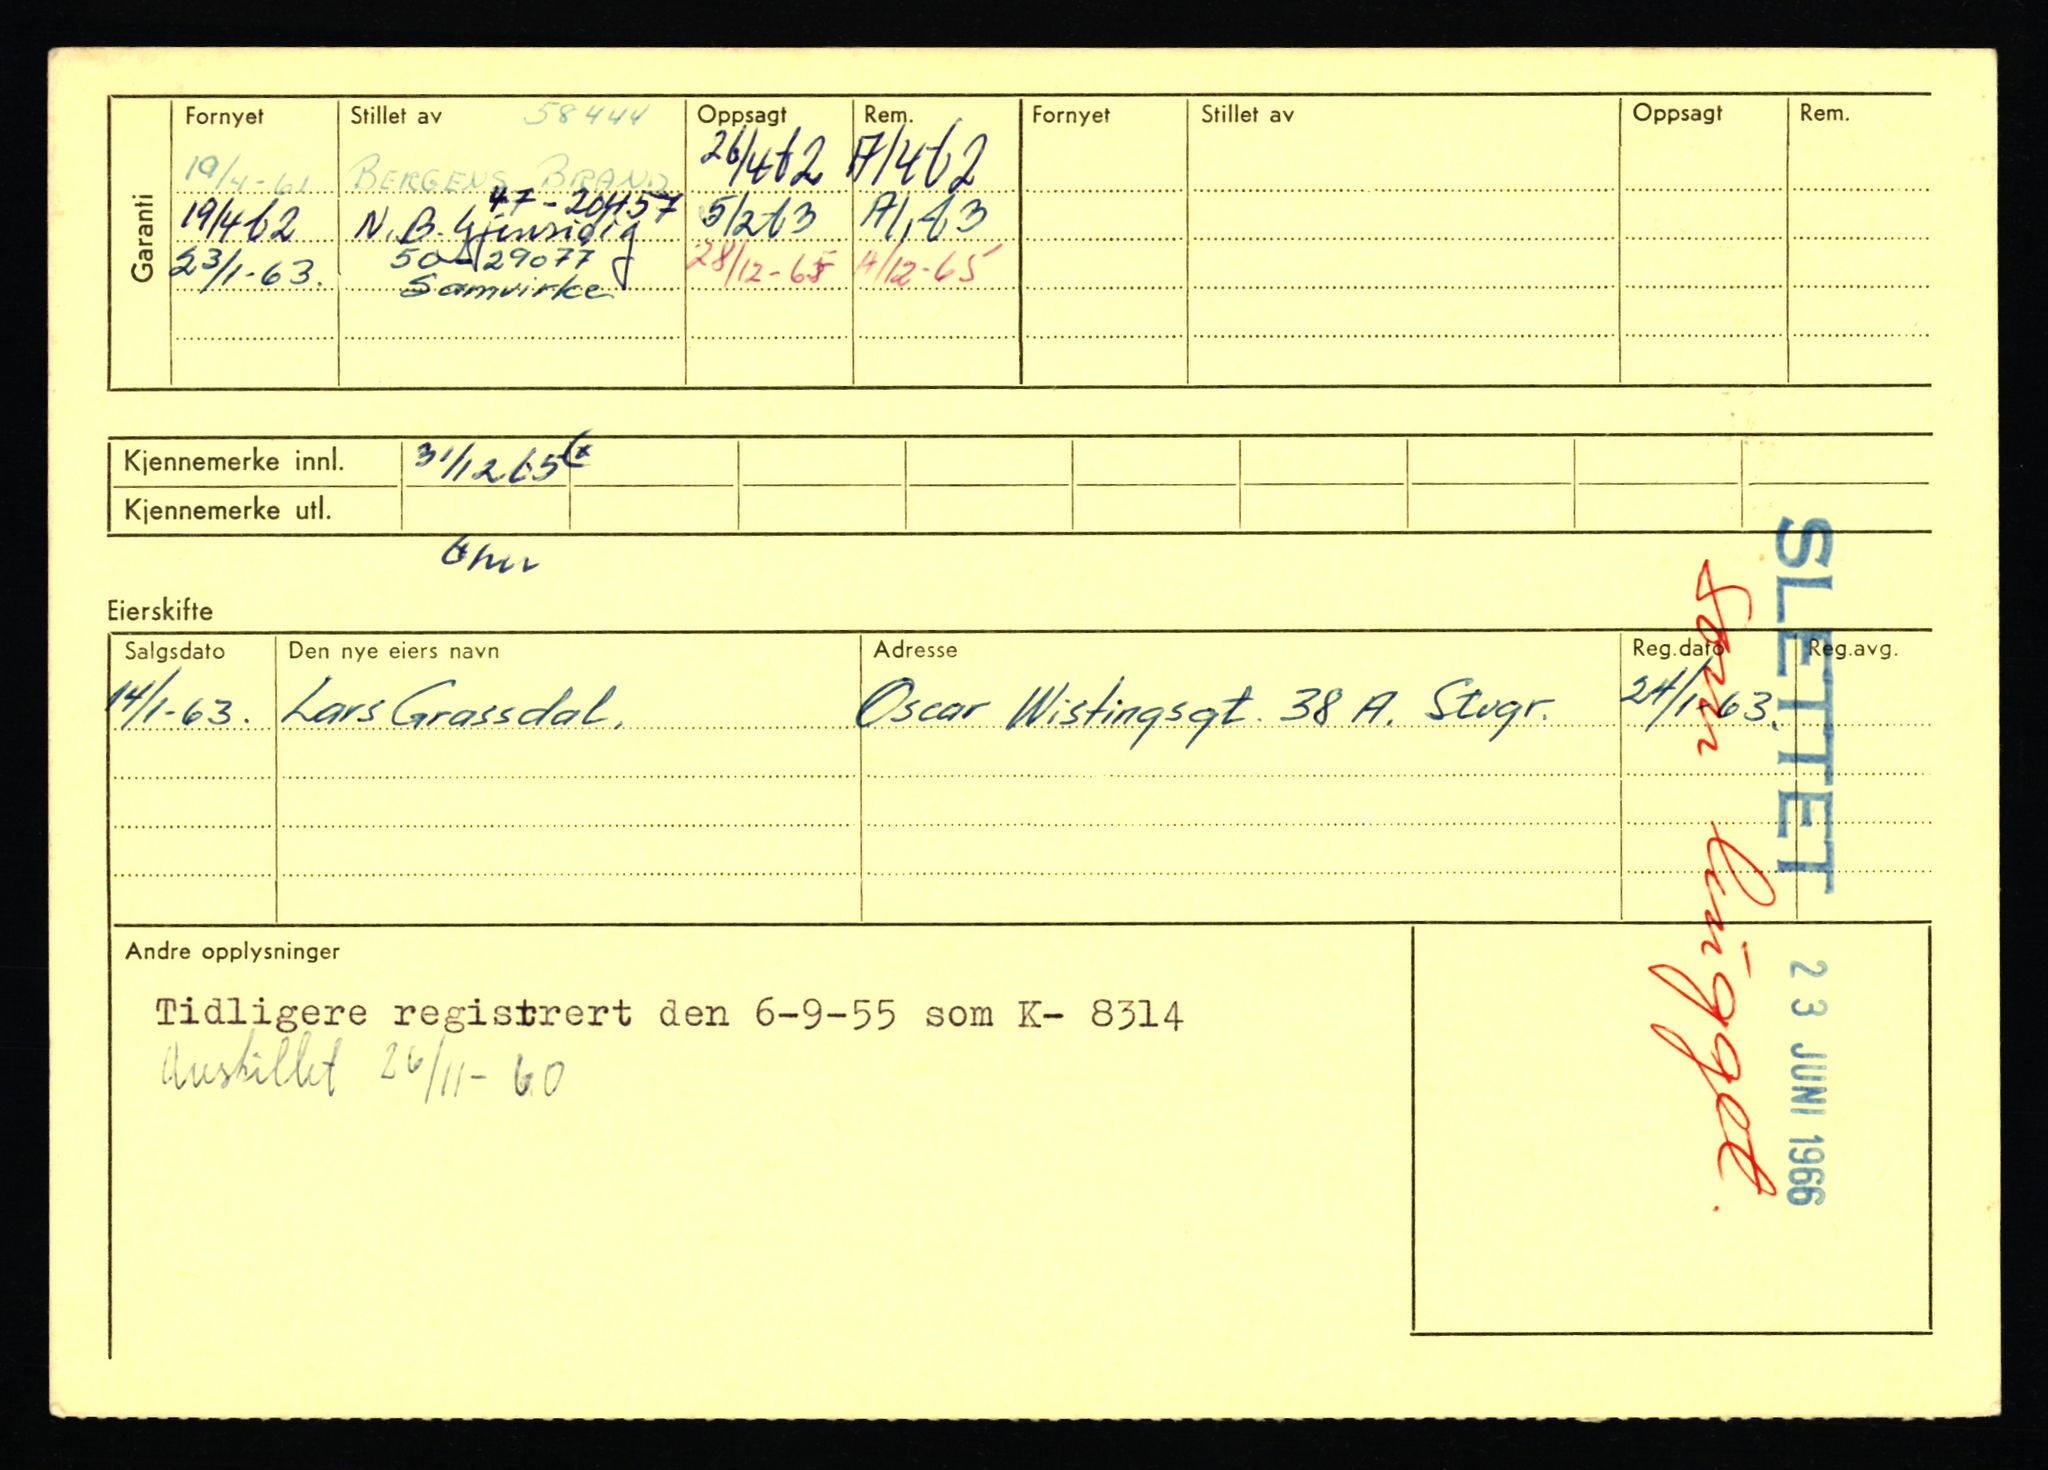 Garanti
Fornyet Stillet av 58444 Oppsagt Rem. Fornyet Stillet av Oppsagt Rem.
19/4-61 BERGENS BRAND 26/4 62 A/4 62
47-204157
19/4 62 N.B. Gjensidig 5/2 63 A/1 63
23/1-63. 50-29077 28/12-65 A/12-65
Samvirke
Kjennemerke innl. 31/12 65
Kjennemerke utl.
Eierskifte
Salgsdato Den nye eiers navn Adresse Reg.dato Reg.avg.
14/1-63. Lars Grassdal. Oscar Wistingsgt. 38 A. Stvgr. 24/1-63.
Andre opplysninger
Tidligere registrert den 6-9-55 som K- 8314
Avskiltet 26/11-60
SLETTET
som
23 JUNI 1966